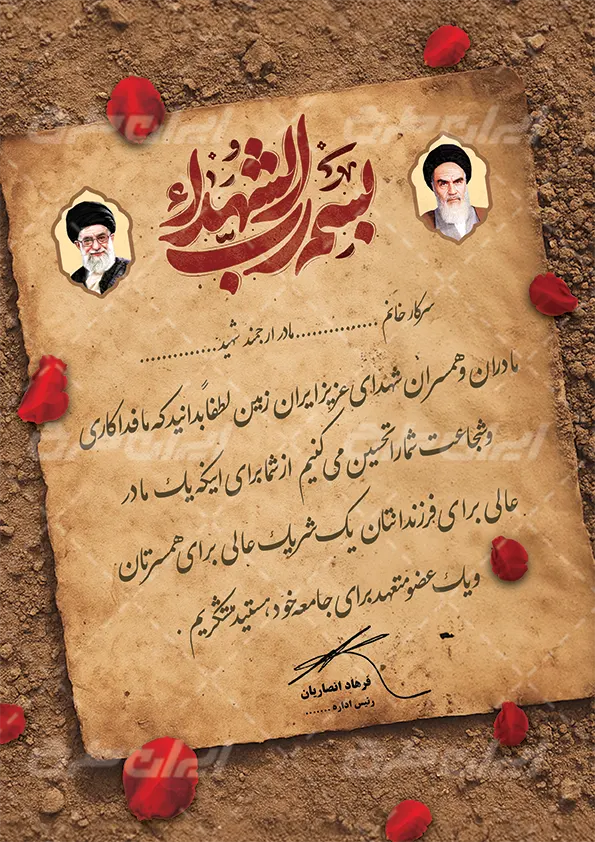 بسم رب الشهداء و
سرکار خانم ............... مادر ارجمند شهید...............
مادران و همسران شهدای عزیز ایران زمین لطفاً بدانید که ما فداکاری
و شجاعت شما را تحسین می کنیم از شما برای اینکه یک مادر
عالی برای فرزندانتان یک شریک عالی برای همسرتان
و یک عضو متعهد برای جامعه خود هستید متشکریم .
فرهاد انصاریان
رئیس اداره .......